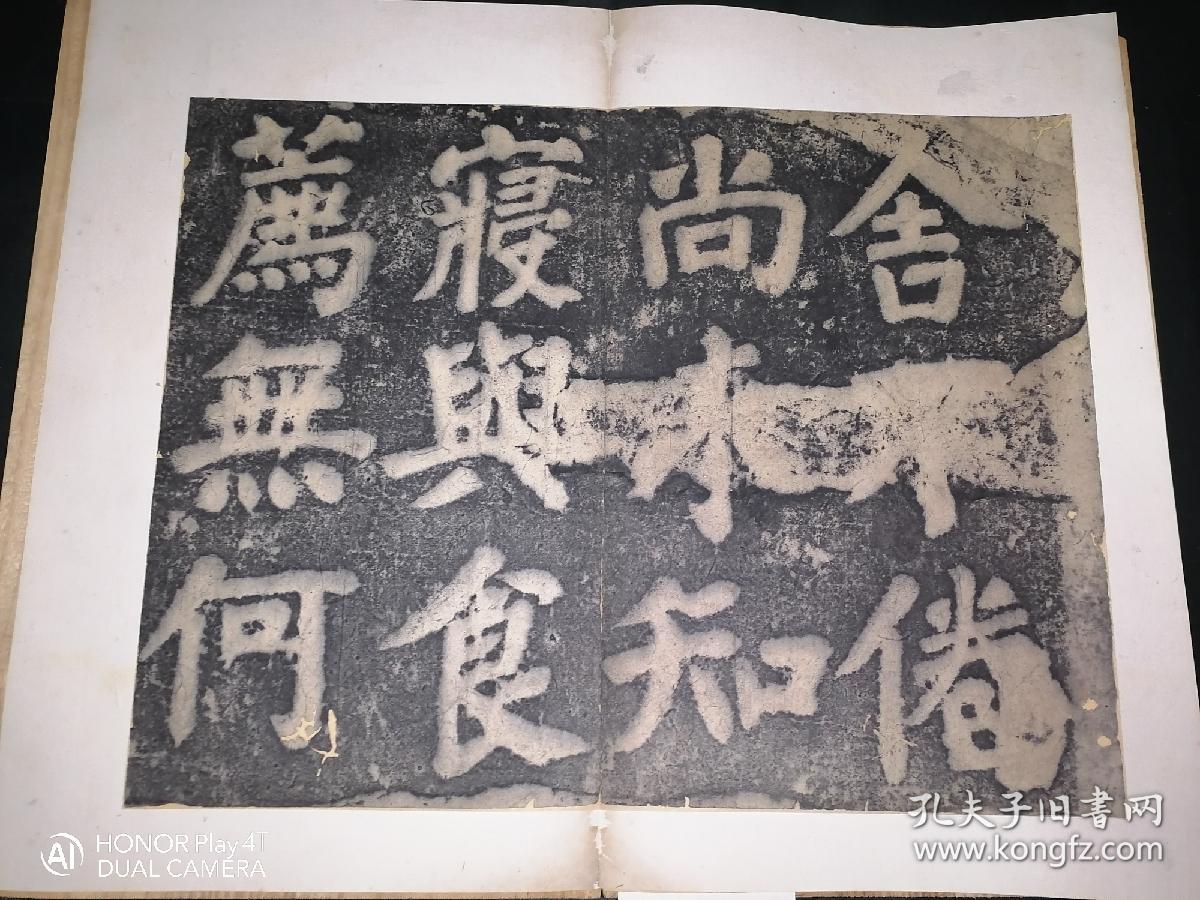 舍不倦
尚未知
寢與食
薦無何
孔夫子旧书网
www.kongfz.com
HONOR Play4T
DUAL CAMERA
AI